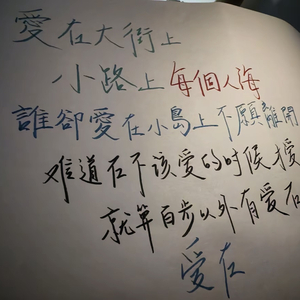 愛在大街上
小路上每個人海
誰卻愛在小島上不願離開
難道在不該愛的时候授
就算百步以外有愛在
愛在